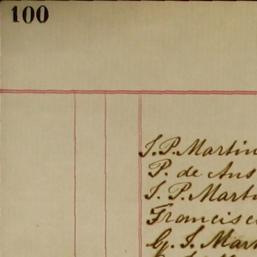 100
J. P. Martin
P. de Ans
J. P. Marti
Francisc
G. J. Mar